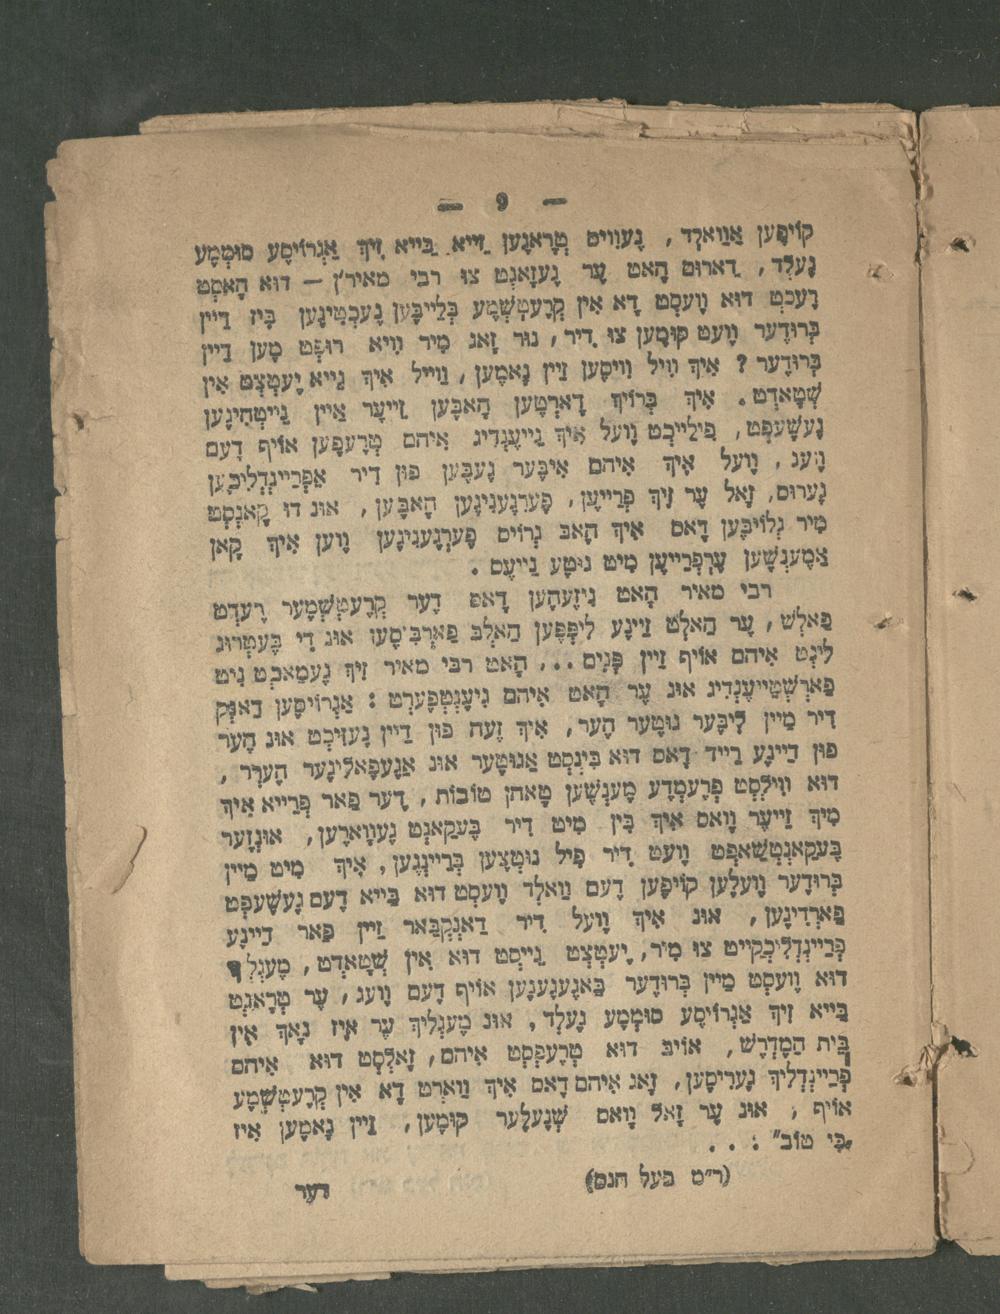 — 9 —
קויפען אַוואַלד, געוויס טראָגען זייא בייא זיך אַגרויסע סוממע
געלד, דאַרום האָט ער געזאָגט צו רבי מאיר'ן — דוא האָסט
רעכט דוא וועסט דאָ אין קרעטשמע בלייבען נעכטיגען ביז דיין
ברודער וועט קומען צו דיר, נור זאָג מיר וויא רופט מען דיין
ברודער? איך וויל וויסען זיין נאָמען, ווייל איך גייא יעטצט אין
שטאָדט. איך ברויך דאָרטען האָבען זייער איין נייטהיגען
געשעפט, פילייכט וועל איך גייענדיג איהם טרעפען אויף דעם
וועג, וועל איך איהם איבער געבען פון דיר אַפריינדליכען
גערוס, זאָל ער זיך פרייען, פערגעניגען האָבען, אונ דו קאָנסט
מיר גלויבען דאָס איך האָב גרויס פערגעניגען ווען איך קאָן
אַמענשען ערפרייען מיט גוטע נייעס.
רבי מאיר האָט גיזעהען דאָס דער קרעטשמער רעדט
פאַלש, ער האַלט זיינע ליפפען האַלב פאַרביסען אונ די בעטרוג
ליגט איהם אויף זיין פנים... האָט רבי מאיר זיך געמאַכט ניט
פאַרשטייענדיג אונ ער האָט איהם גיענטפערט: אַגרויסען דאַנק
דיר מיין ליבער גוטער הער, איך זעה פון דיין געזיכט אונ הער
פון דיינע רייד דאָס דוא בינסט אַגוטער אונ אַנעפאַלינער הערר,
דוא ווילסט פרעמדע מענשען טאָהן טובות, דער פאַר פרייא איך
מיך זייער וואָס איך בין מיט דיר בעקאַנט געוואָרען, אונזער
בעקאַנטשאַפט וועט דיר פיל נוטצען ברייננען, איך מיט מיין
ברודער וועלען קויפען דעם וואַלד וועסט דוא בייא דעם געשעפט
פאַרדינען, אונ איך וועל דיר דאַנקבאַר זיין פאַר דיינע
פריינדליכקייט צו מיר, יעטצט גייסט דוא אין שטאָדט, מעגליך
דוא וועסט מיין ברודער באַגעגענען אויף דעם וועג, ער טראָגט
בייא זיך אַגרויסע סוממע געלד, אונ מעגליך ער איז נאָך אין
בית המדרש, אויב דוא טרעפסט איהם, זאָלסט דוא איהם
פריינדליך גערוסען, זאָג איהם דאָס איך וואַרט דאָ אין קרעטשמע
אויף, אונ ער זאָל וואָס שנעלער קומען, זיין נאָמען איז
„כי טוב" : . .
(ר"מ בעל הנס)
דער